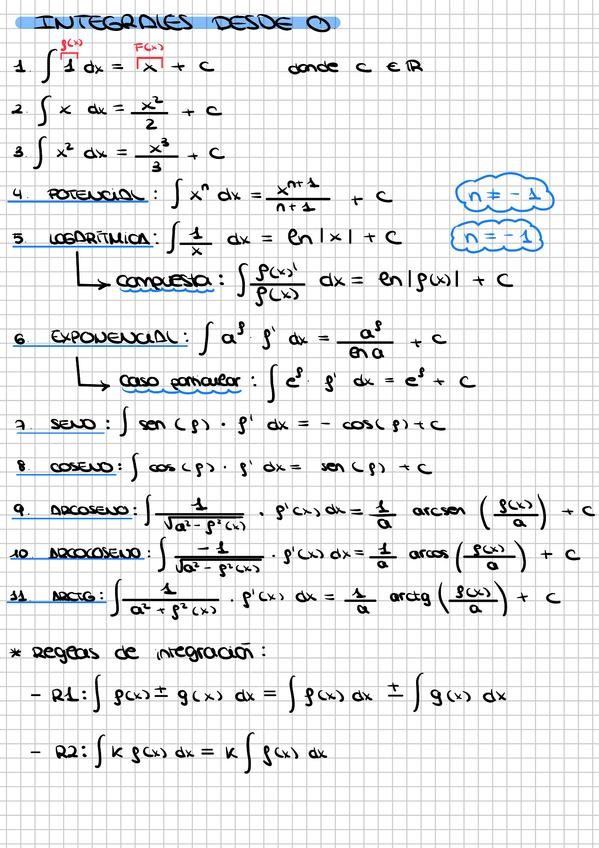 INTEGRALES DESDE 0
f(x) F(x)
1. ∫ 1 dx = x + C donde C ∈ ℝ
2. ∫ x dx = x²/2 + C
3. ∫ x² dx = x³/3 + C
4. POTENCIAL: ∫ xⁿ dx = xⁿ⁺¹/n+1 + C n ≠ -1
5. LOGARÍTMICA: ∫ 1/x dx = ln|x| + C n = -1
↳ compuesta: ∫ f(x)'/f(x) dx = ln|f(x)| + C
6. EXPONENCIAL: ∫ aᶠ · f' dx = aᶠ/ln a + C
↳ caso particular: ∫ eᶠ · f' dx = eᶠ + C
7. SENO: ∫ sen(f) · f' dx = - cos(f) + C
8. COSENO: ∫ cos(f) · f' dx = sen(f) + C
9. ARCOSENO: ∫ 1/√(a² - f²(x)) · f'(x) dx = 1/a arcsen (f(x)/a) + C
10. ARCOCOSENO: ∫ -1/√(a² - f²(x)) · f'(x) dx = 1/a arcos (f(x)/a) + C
11. ARCTG: ∫ 1/a² + f²(x) · f'(x) dx = 1/a arctg (f(x)/a) + C
* Reglas de integración:
- R1: ∫ f(x) ± g(x) dx = ∫ f(x) dx ± ∫ g(x) dx
- R2: ∫ K f(x) dx = K ∫ f(x) dx